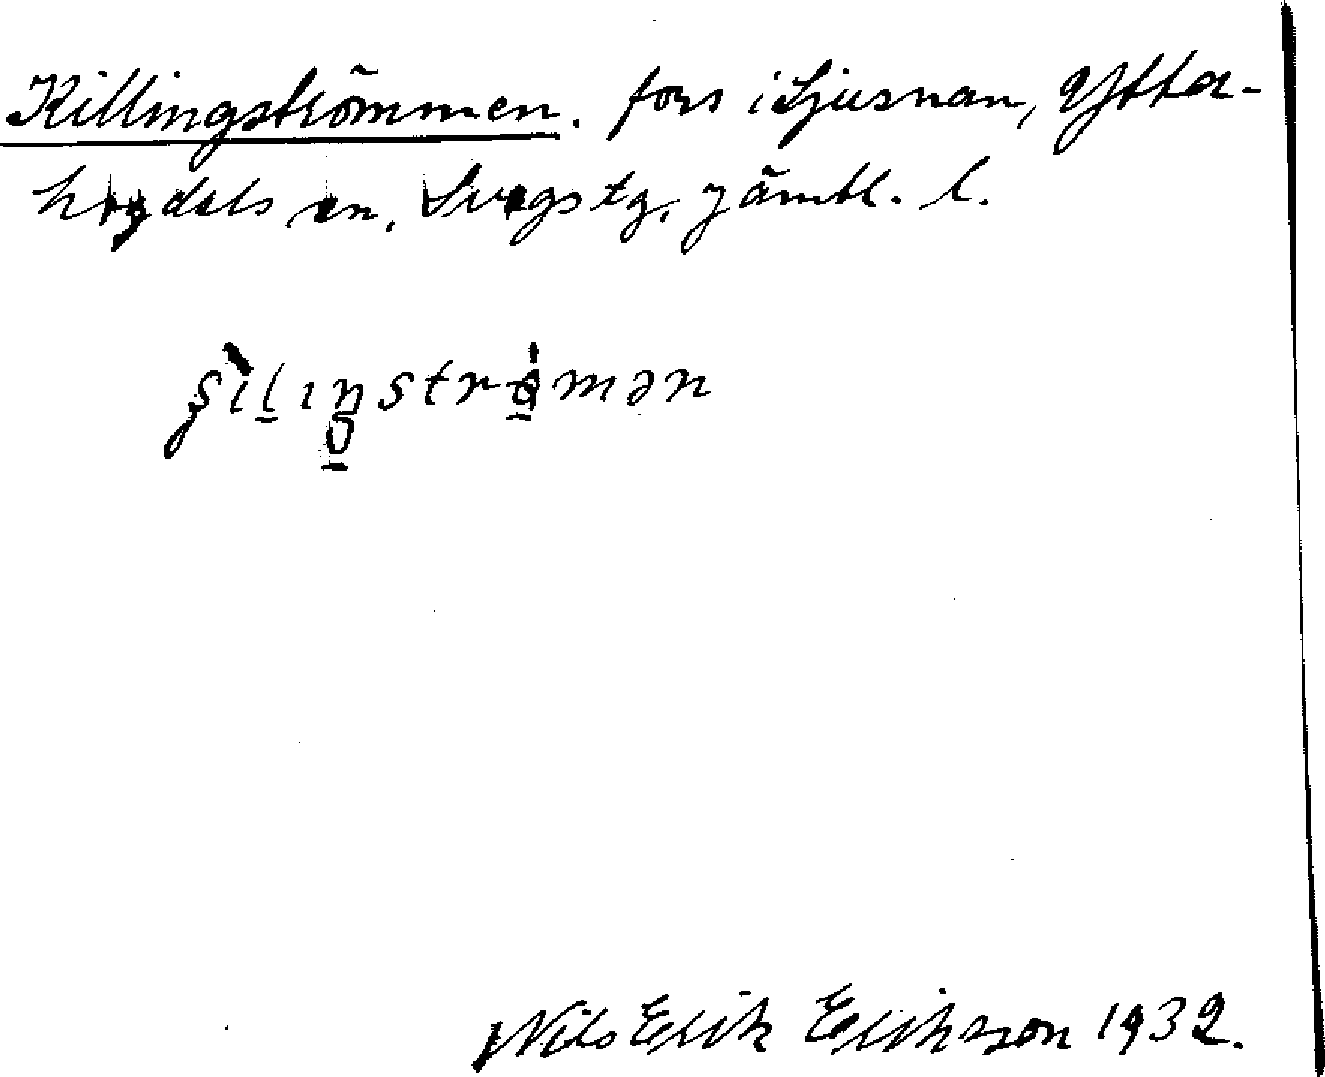 Killingströmmen. fors i Ljusnan, Ytter-
hogdals sn, Svegs tg, Jämtl. l.
Nils Erik Erikson 1932.